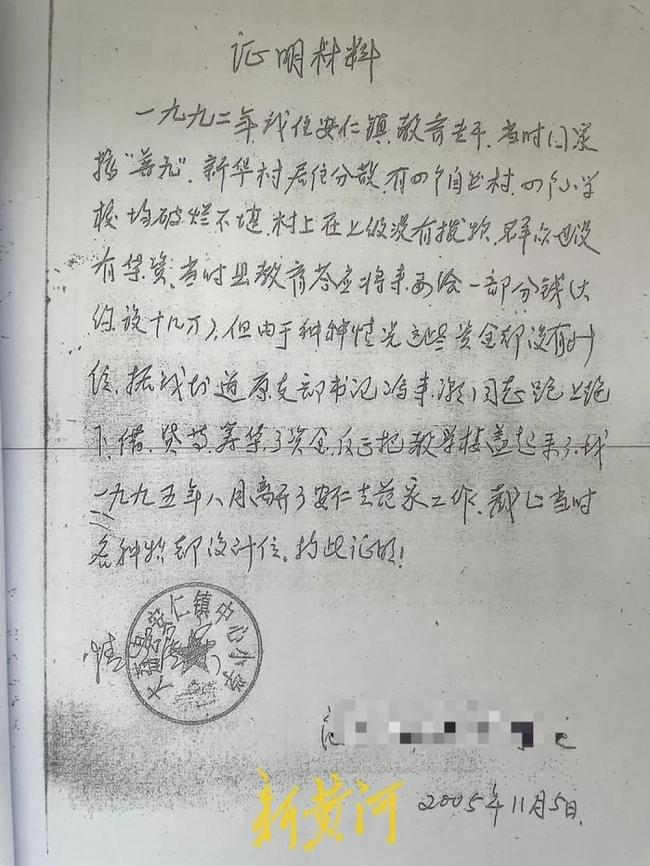 证明材料
一九九二年我任安仁镇教育专干,当时国家
搞"普九",新华村居住分散,有四个自然村,四个小学
校均破烂不堪,村上在上级没有拨款,群众也没
有集资,当时县教育答应将来要给一部分钱(大
约效十几万),但由于种种情况这些资金却没有到
位,据我知道原支部书记冯来潮同志跑上跑
下,借、贷等筹集了资金,把教学楼盖起来了,我
一九九五年八月离开了安仁去范家工作,截止当时
各种款都没到位。特此证明!
情况
安仁镇中心小学
2005年11月5日
新黄河